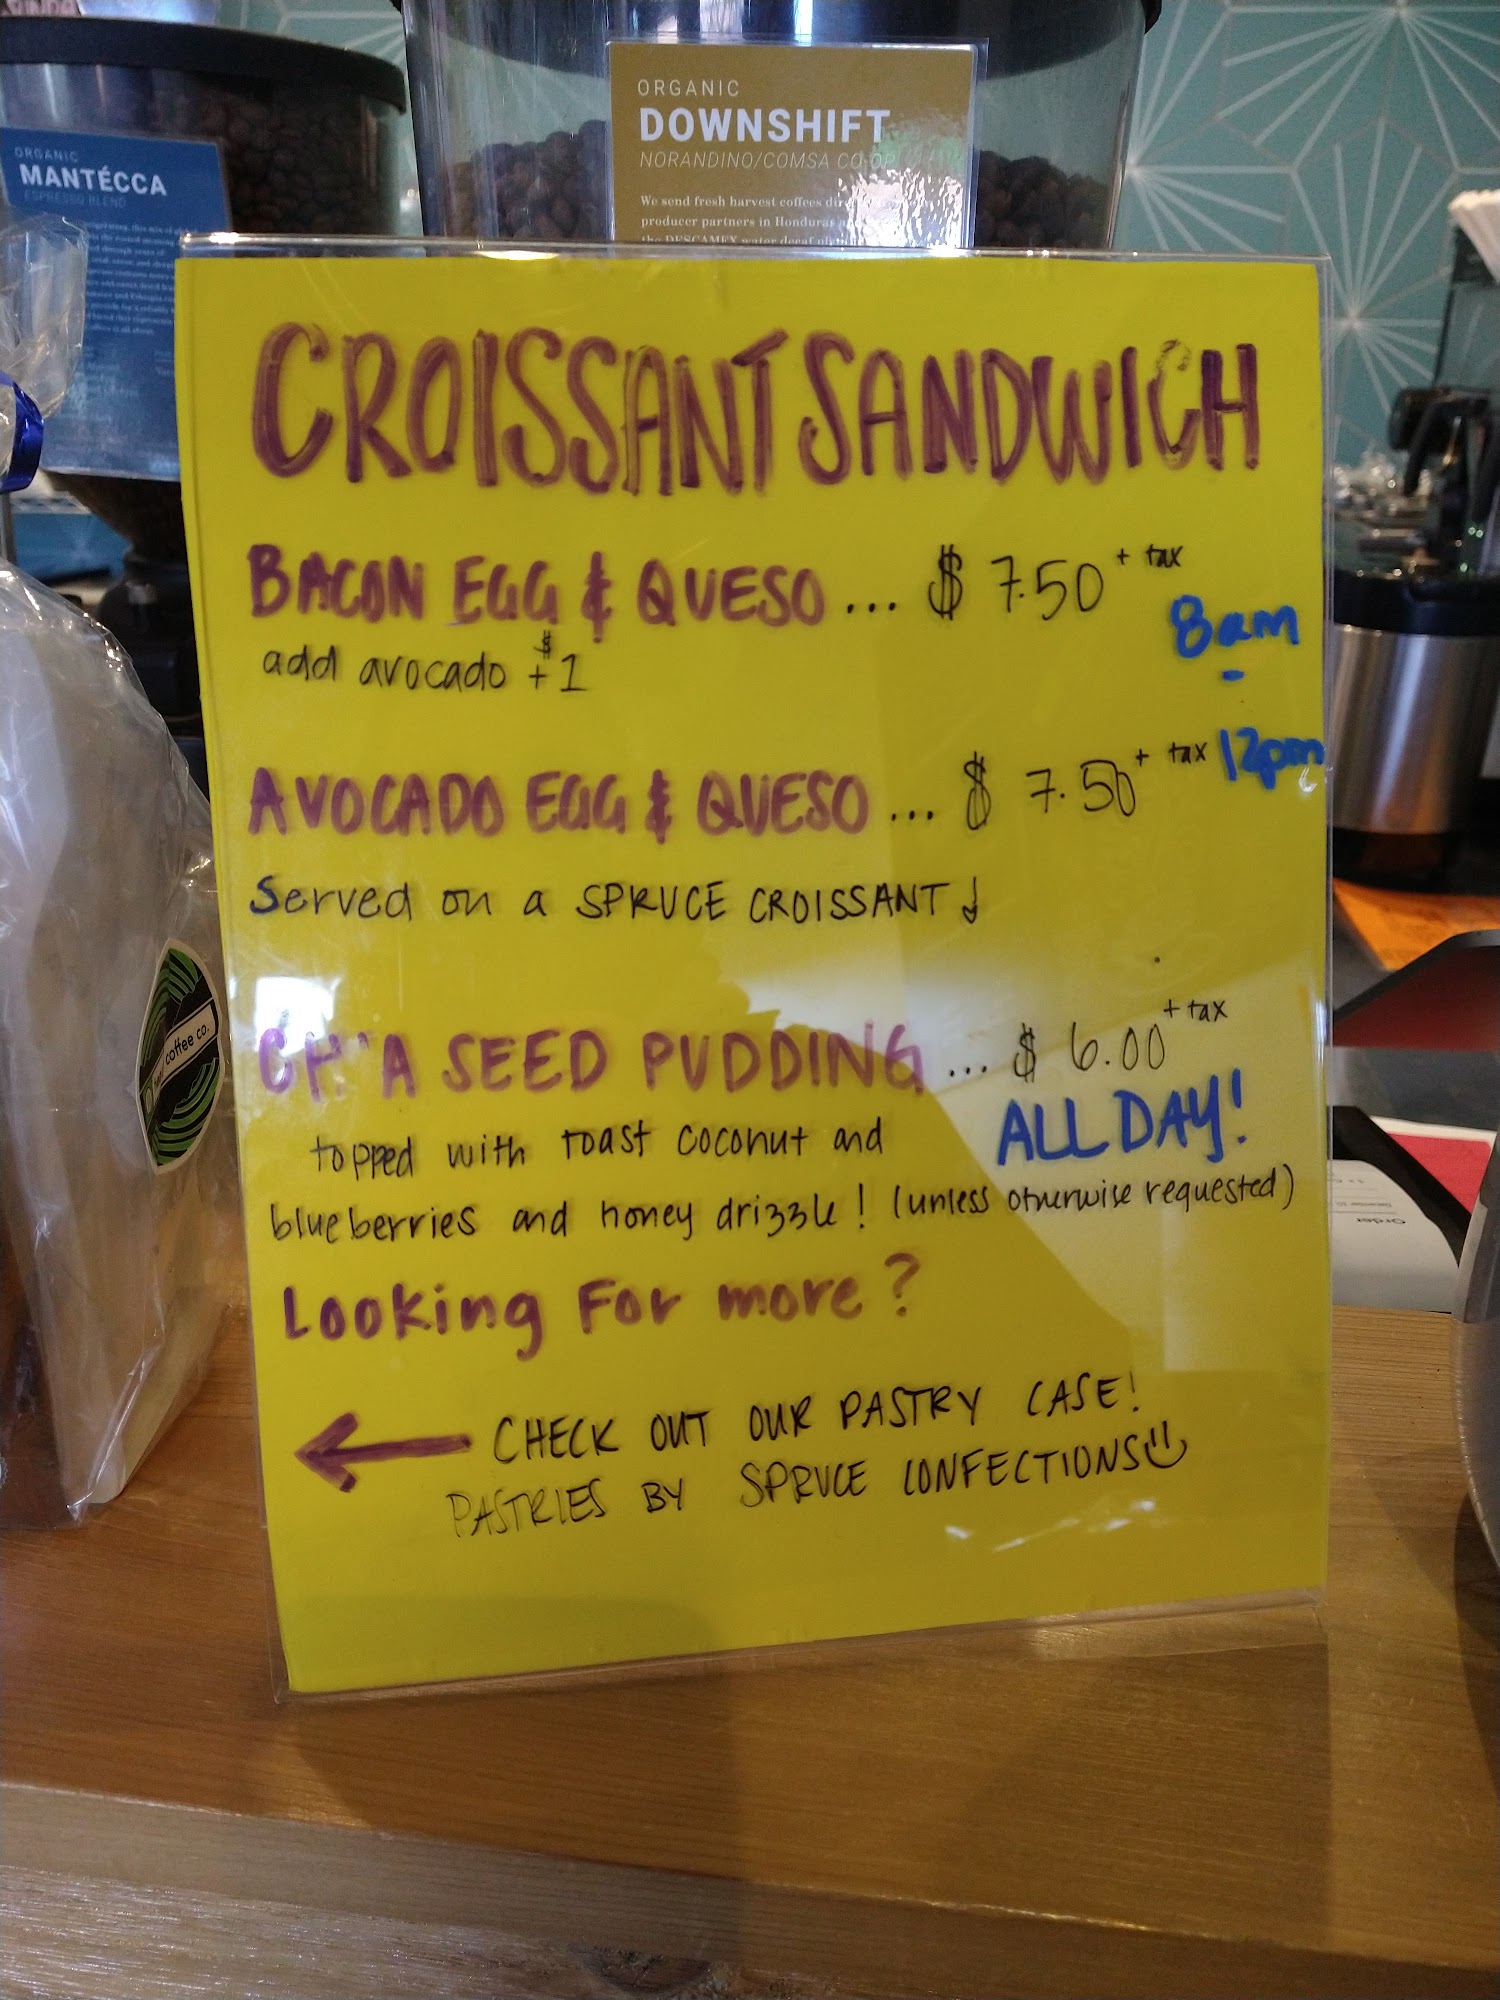 ORGANIC
MANTÉCCA
ESPRESSO BLEND
ORGANIC
DOWNSHIFT
NORANDINO/COMSA CO-OP
We send fresh harvest coffees
producer partners in Honduras
the DESCAMEX water decaf
CROISSANT SANDWICH
BACON EGG & QUESO ... $ 7.50 + tax
add avocado + $1
8am
-
12pm
AVOCADO EGG & QUESO ... $ 7.50 + tax
Served on a SPRUCE CROISSANT
CH'A SEED PUDDING ... $ 6.00 + tax
ALL DAY!
topped with toast coconut and
blueberries and honey drizzle! (unless otherwise requested)
Looking For more?
← CHECK OUT OUR PASTRY CASE!
PASTRIES BY SPRUCE CONFECTIONS
coffee co.
Order